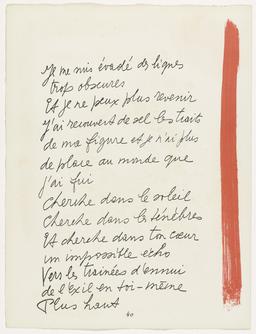 Je me suis évadé des lignes
trop obscures
Et je ne peux plus revenir
J'ai recouvert de sel les traits
de ma figure et je n'ai plus
de place au monde que
j'ai fui
Cherche dans le soleil
Cherche dans les ténèbres
Et cherche dans ton cœur
un impossible écho
Vers les traînées d'ennui
de l'Exil en toi-même
Plus haut